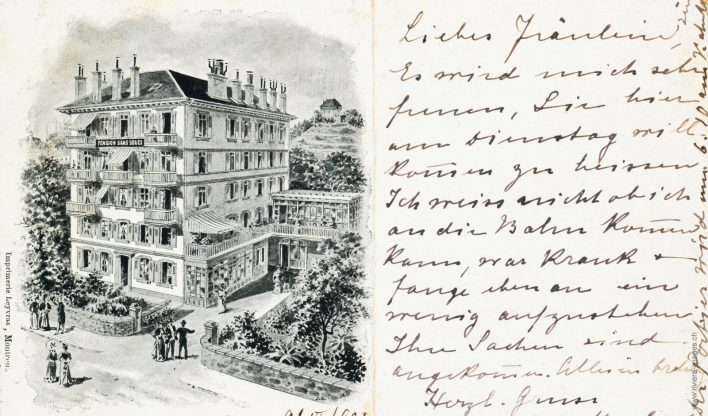 PENSION SANS SOUCI
Imprimerie Leyvraz, Montreux.
Liebes Fräulein,
Es wird mich sehr
freuen, Sie hier
am Dienstag will
kom̅en zu heissen
Ich weiss nicht ob ich
an die Bahn kom̅en
kann, war krank +
fange eben an ein
wenig aufzustehen
Ihre Sachen sind
angekom̅en. Alles in
Herzl. Gruss
wird um 6.